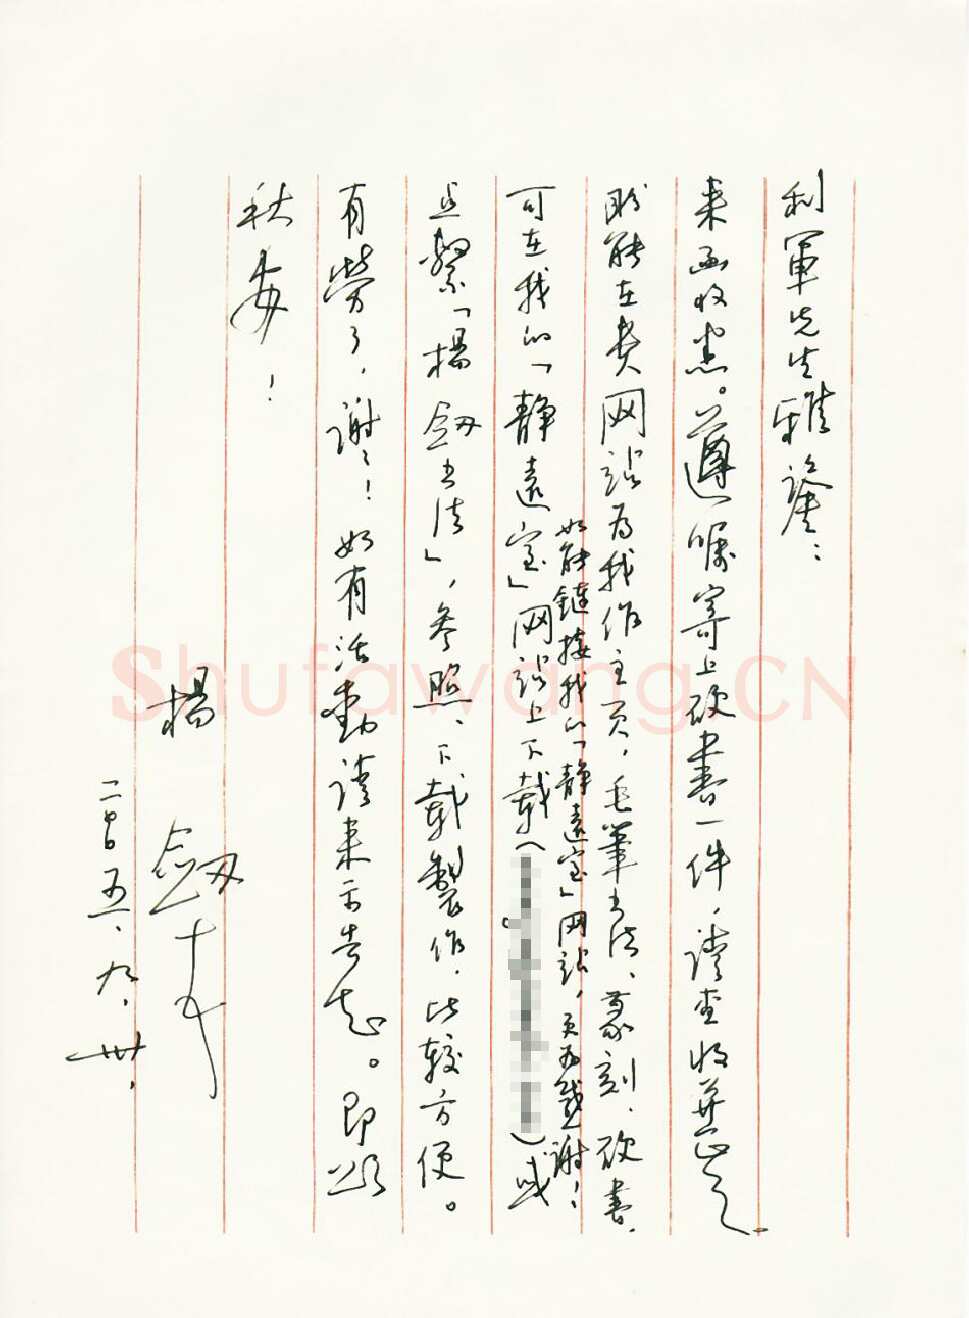 利軍先生雅鑒：
来函收悉。遵嘱寄上硬書一件，請查收並正之。
盼能在貴网站為我作主页，毛筆书法、篆刻、硬書，
如能鏈接我的「静遠室」网站，更为感謝！
可在我的「静遠室」网站上下載（）或
「楊劔书法」，参照、下載製作，比较方便。
有勞了，謝謝！如有活動請来示告知。即颂
秋安！
楊劔
二〇〇五、九、卅、
Shufawang.CN